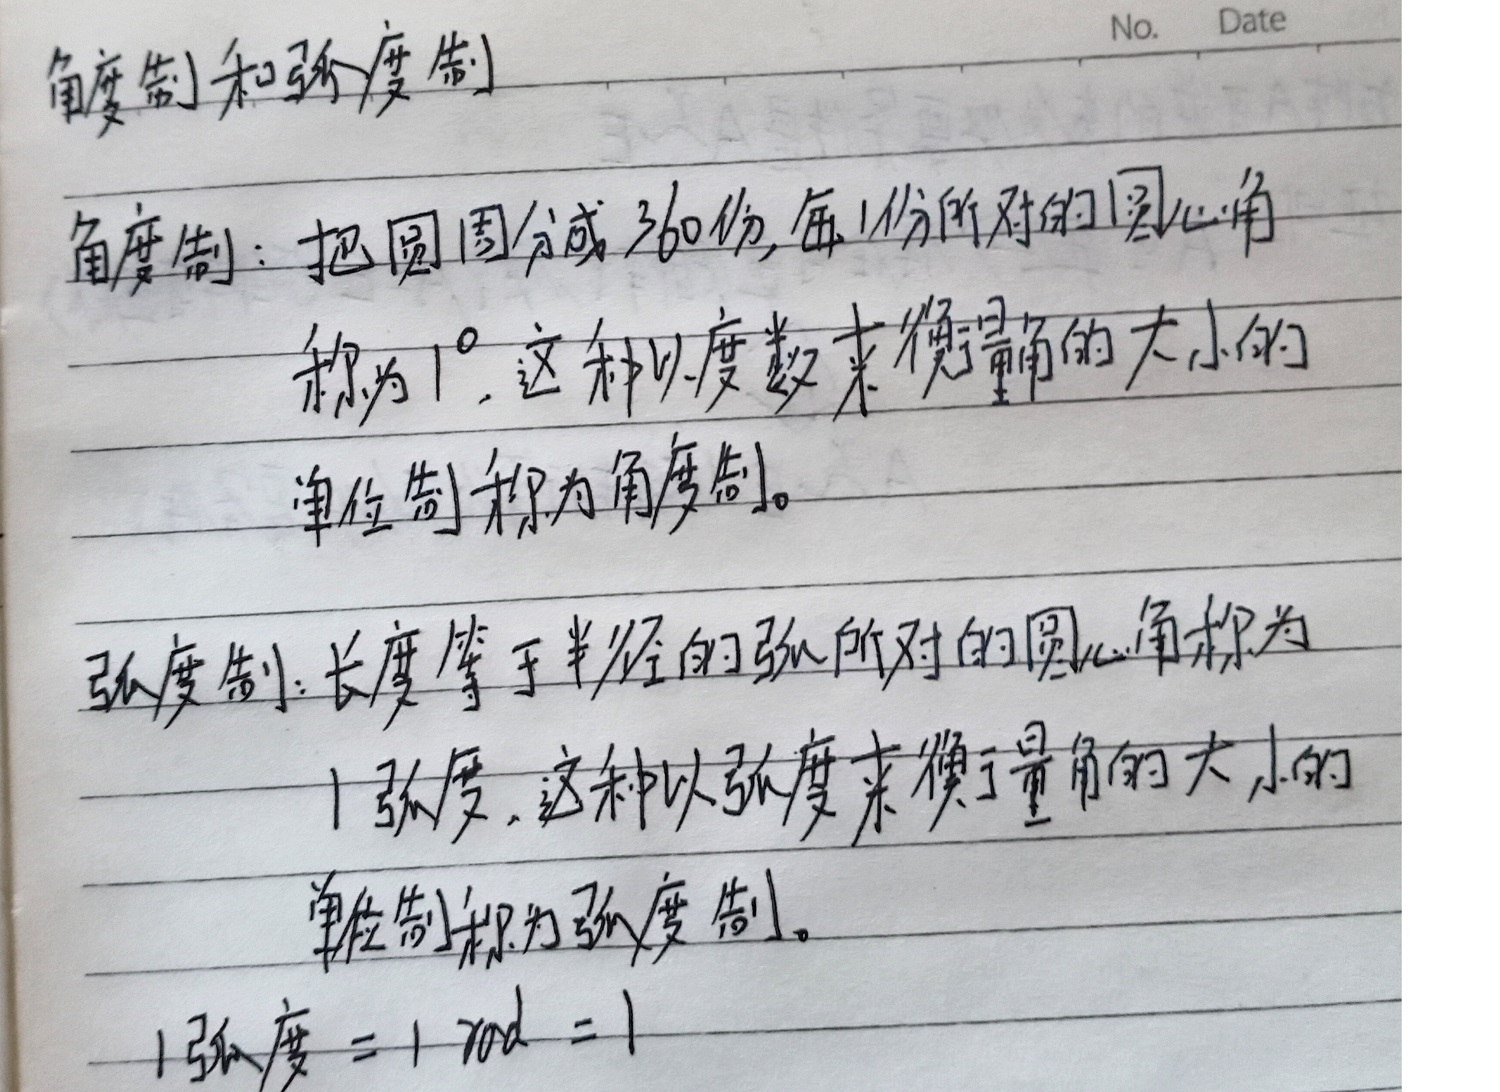 No. Date
角度制和弧度制
角度制：把圆周分成360份，每1份所对的圆心角
称为1°，这种以度数来衡量角的大小的
单位制称为角度制。
弧度制：长度等于半径的弧所对的圆心角称为
1弧度，这种以弧度来衡量角的大小的
单位制称为弧度制。
1弧度 = 1 rad = 1